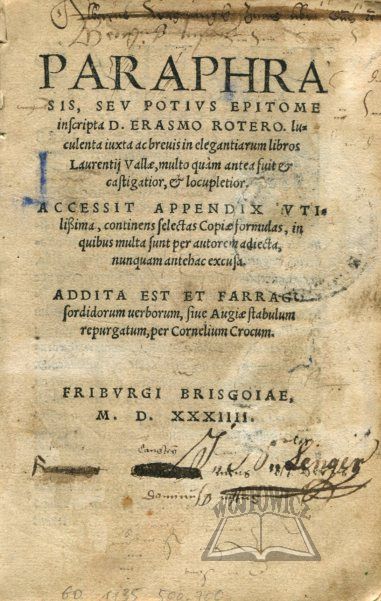 PARAPHRA
SIS, SEV POTIVS EPITOME
inscripta D. ERASMO ROTERO. lu-
culenta iuxta ac breuis in elegantiarum libros
Laurentij Vallæ, multo quàm antea fuit &
castigatior, & locupletior.
ACCESSIT APPENDIX VTI-
lißima, continens selectas Copiæ formulas, in
quibus multa sunt per autorem adiecta,
nunquam antehac excusa.
ADDITA EST ET FARRAGO
sordidorum uerborum, siue Augiæ stabulum
repurgatum, per Cornelium Crocum.
FRIBVRGI BRISGOIAE,
M. D. XXXIIII.
WÓJTOWICZ